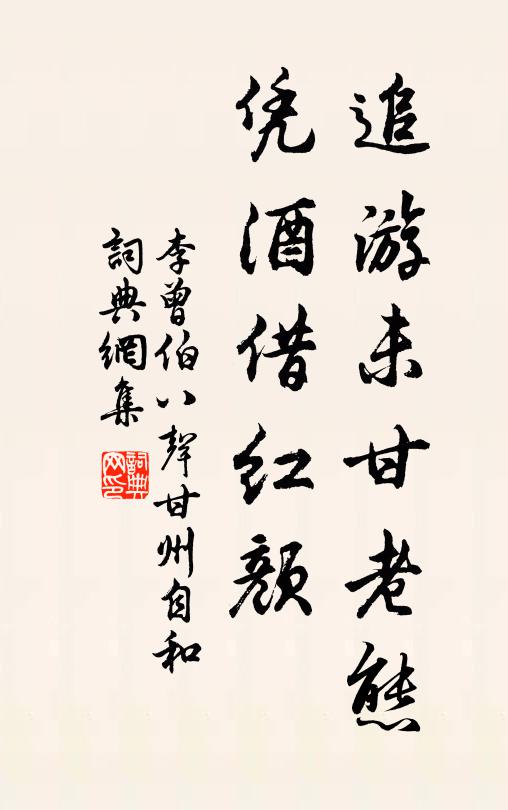 追游未甘老態
凭酒借红颜
李曾伯八聲甘州自和
詞典網集
詞典网印